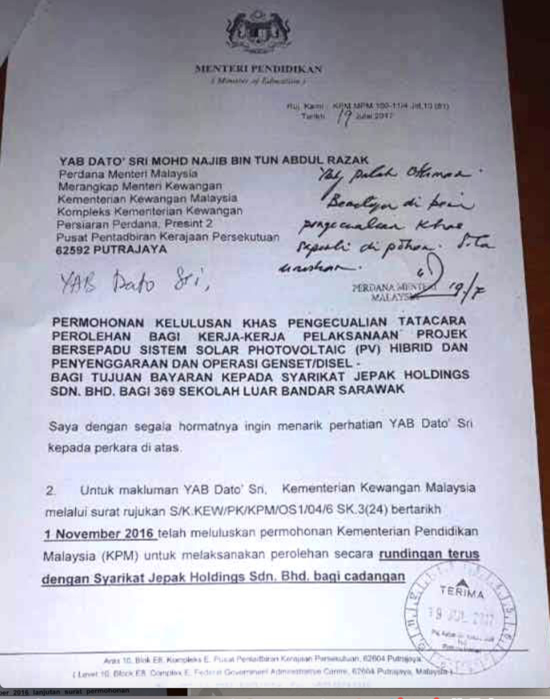 MENTERI PENDIDIKAN
( Minister of Education )
Ruj. Kami : KPM.MPM.100-11/4 Jld.13 (81)
Tarikh : 19 Julai 2017
YAB DATO' SRI MOHD NAJIB BIN TUN ABDUL RAZAK
Perdana Menteri Malaysia
Merangkap Menteri Kewangan
Kementerian Kewangan Malaysia
Kompleks Kementerian Kewangan
Persiaran Perdana, Presint 2
Pusat Pentadbiran Kerajaan Persekutuan
62592 PUTRAJAYA
di beri
pengecualian khas
seperti di pohon. Sila
uruskan.
PERDANA MENTERI
MALAYSIA
19/7
YAB Dato Sri,
PERMOHONAN KELULUSAN KHAS PENGECUALIAN TATACARA
PEROLEHAN BAGI KERJA-KERJA PELAKSANAAN PROJEK
BERSEPADU SISTEM SOLAR PHOTOVOLTAIC (PV) HIBRID DAN
PENYENGGARAAN DAN OPERASI GENSET/DISEL -
BAGI TUJUAN BAYARAN KEPADA SYARIKAT JEPAK HOLDINGS
SDN. BHD. BAGI 369 SEKOLAH LUAR BANDAR SARAWAK
Saya dengan segala hormatnya ingin menarik perhatian YAB Dato' Sri
kepada perkara di atas.
2. Untuk makluman YAB Dato' Sri, Kementerian Kewangan Malaysia
melalui surat rujukan S/K.KEW/PK/KPM/OS1/04/6 SK.3(24) bertarikh
1 November 2016 telah meluluskan permohonan Kementerian Pendidikan
Malaysia (KPM) untuk melaksanakan perolehan secara rundingan terus
dengan Syarikat Jepak Holdings Sdn. Bhd. bagi cadangan
TERIMA
Aras 10, Blok E8, Kompleks E, Pusat Pentadbiran Kerajaan Persekutuan, 62604 Putrajaya
( Level 10, Block E8, Complex E, Federal Government Administrative Centre, 62604 Putrajaya, Malaysia )